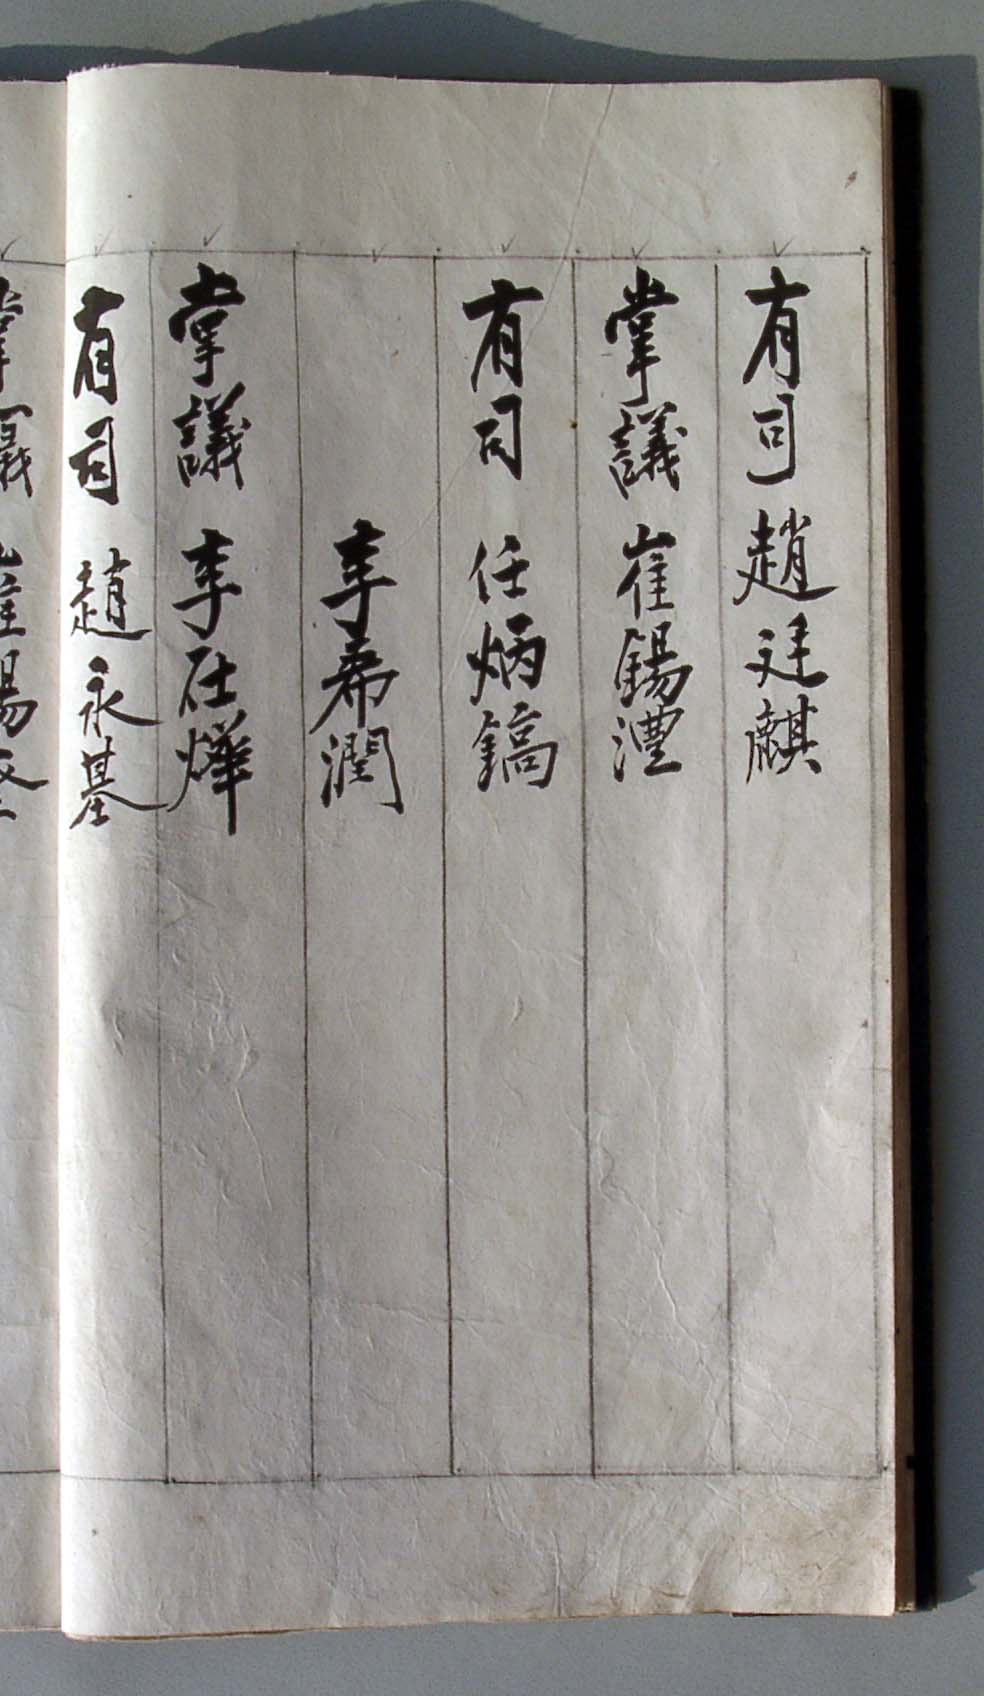 有司 趙廷麒
掌議 崔錫澧
有司 任炳鎬
李希潤
掌議 李在燁
有司 趙永基
掌議 崔錫